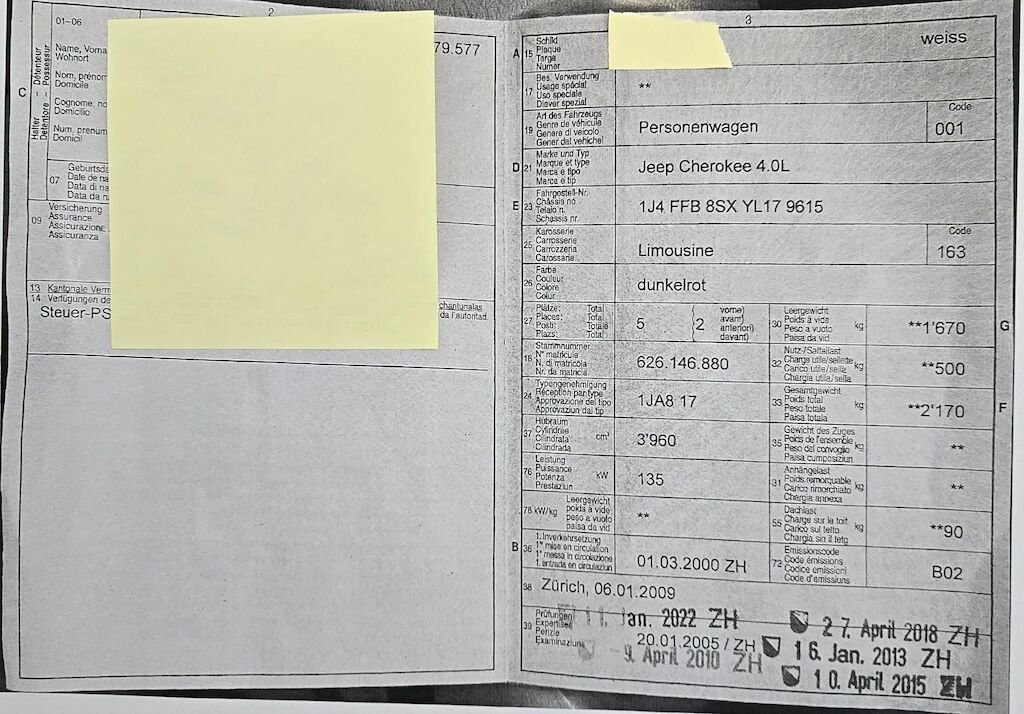 2
01–06
Détenteur
Possessur
Halter
Detentore
C
Name, Vorna
Wohnort
Nom, prénom
Domicile
Cognome, no
Domicilio
Num, prenum
Domicil
79.577
07
Geburtsda
Date de na
Data di na
Data da na
09
Versicherung
Assurance
Assicurazione
Assicuranza
13 Kantonale Verm
14. Verfügungen de
chantunalas
da l'autoritad
Steuer-PS
3
A 15 Schild
Plaque
Targa
Numer
weiss
17 Bes. Verwendung
Usage spécial
Uso speciale
Diever spezial
**
19 Art des Fahrzeugs
Genre de véhicule
Genere di veicolo
Gener dal vehichel
Personenwagen
Code
001
D 21 Marke und Typ
Marque et type
Marca e tipo
Marca e tip
Jeep Cherokee 4.0L
E 23 Fahrgestell-Nr.
Châssis no
Telaio n.
Schassis nr.
1J4 FFB 8SX YL17 9615
25 Karosserie
Carrosserie
Carrozzeria
Carossaria
Limousine
Code
163
26 Farbe
Couleur
Colore
Colur
dunkelrot
27 Plätze: Total
Places: Total
Posti: Totale
Plazs: Total
5
(2 vorne)
avant)
anteriori)
davant)
30 Leergewicht
Poids à vide
Peso a vuoto
Paisa da vid
kg
**1'670
G
18 Stammnummer
N° matricule
N. di matricola
Nr. da matricla
626.146.880
32 Nutz-/Sattellast
Charge utile/sellette
Carico utile/sella
Chargia utila/sella
kg
**500
24 Typengenehmigung
Réception par type
Approvazione del tipo
Approvaziun dal tip
1JA8 17
33 Gesamtgewicht
Poids total
Peso totale
Paisa totala
kg
**2'170
F
37 Hubraum
Cylindrée
Cilindrata
Cilindrada
cm³
3'960
35 Gewicht des Zuges
Poids de l'ensemble
Peso del convoglio
Paisa cumposiziun
kg
**
76 Leistung
Puissance
Potenza
Prestaziun
kW
135
31 Anhängelast
Poids remorquable
Carico rimorchiato
Chargia annexa
kg
**
78 kW/kg
Leergewicht
poids à vide
peso a vuoto
paisa da vid
**
55 Dachlast
Charge sur le toit
Carico sul tetto
Chargia sin il tetg
kg
**90
B 36 1. Inverkehrsetzung
1re mise en circulation
1a messa in circolazione
1. entrada en circulaziun
01.03.2000 ZH
72 Emissionscode
Code émissions
Codice emissioni
Code d'emissiuns
B02
38 Zürich, 06.01.2009
39 Prüfungen
Expertises
Perizie
Examinaziuns
11. Jan. 2022 ZH
27. April 2018 ZH
20.01.2005 / ZH
16. Jan. 2013 ZH
- 9. April 2010 ZH
10. April 2015 ZH